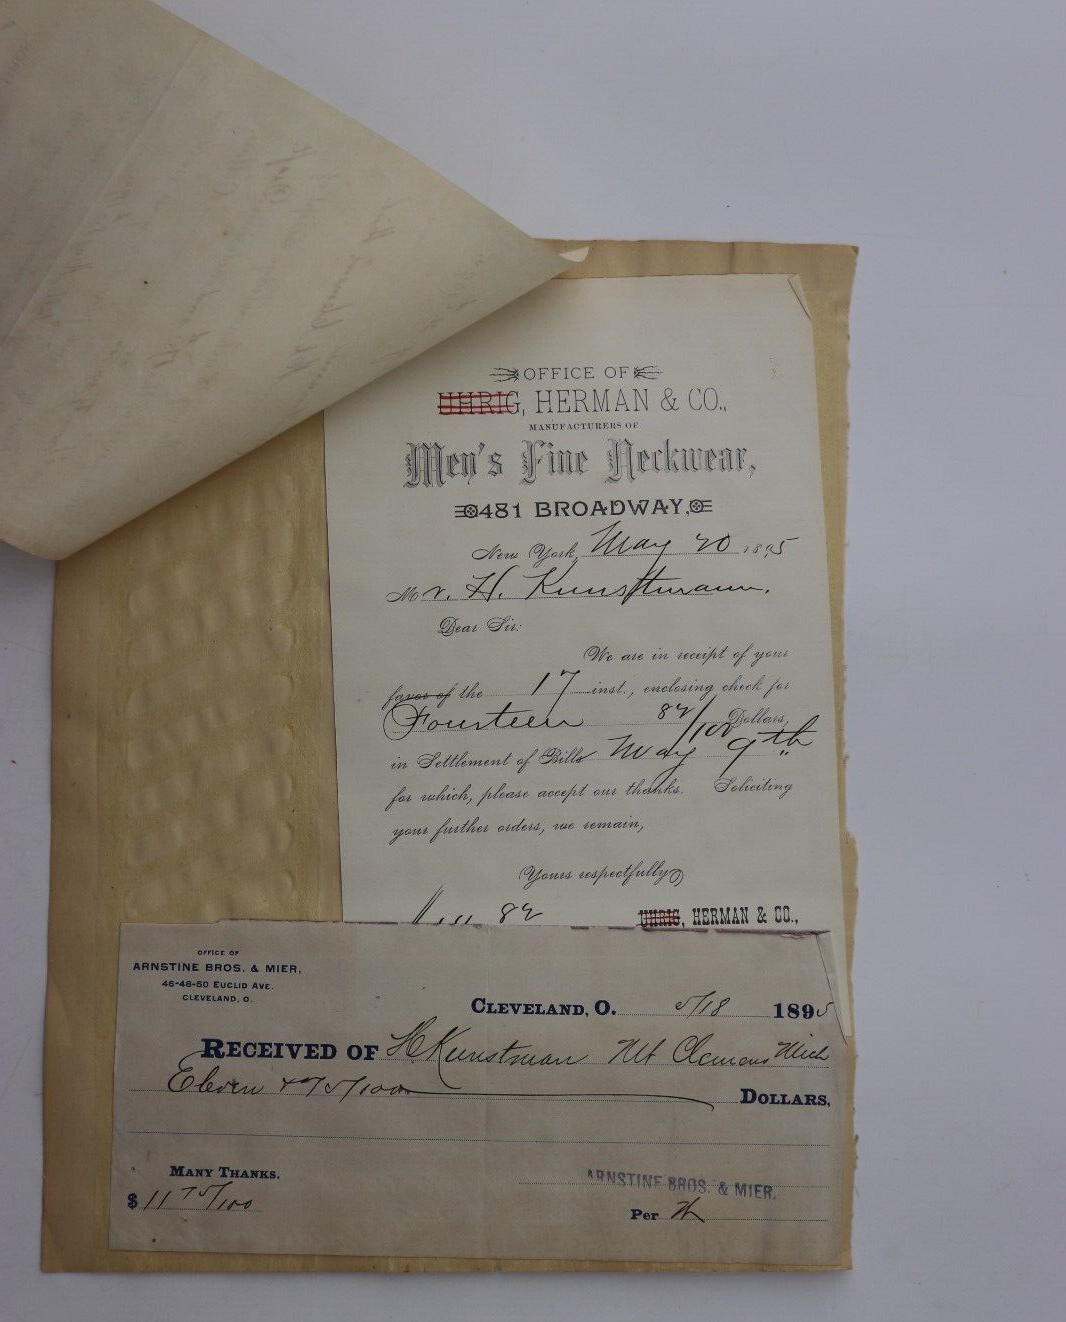 OFFICE OF
UHRIG, HERMAN & CO.,
MANUFACTURERS OF
Men's Fine Neckwear,
481 BROADWAY,
New York, May 20 1895
Mr. H. Kunstmann.
Dear Sir:
We are in receipt of your
favor of the 17 inst., enclosing check for
Fourteen 82/100 Dollars,
in Settlement of Bills May 9th
for which, please accept our thanks. Soliciting
your further orders, we remain,
Yours respectfully
82 UHRIG, HERMAN & CO.,
OFFICE OF
ARNSTINE BROS. & MIER,
46-48-50 EUCLID AVE.
CLEVELAND, O.
CLEVELAND, O. 5/18 1895
RECEIVED OF H Kunstman Mt Clemens Mich
Eleven & 75/100 DOLLARS,
MANY THANKS.
ARNSTINE BROS. & MIER.
$ 11 75/100
Per